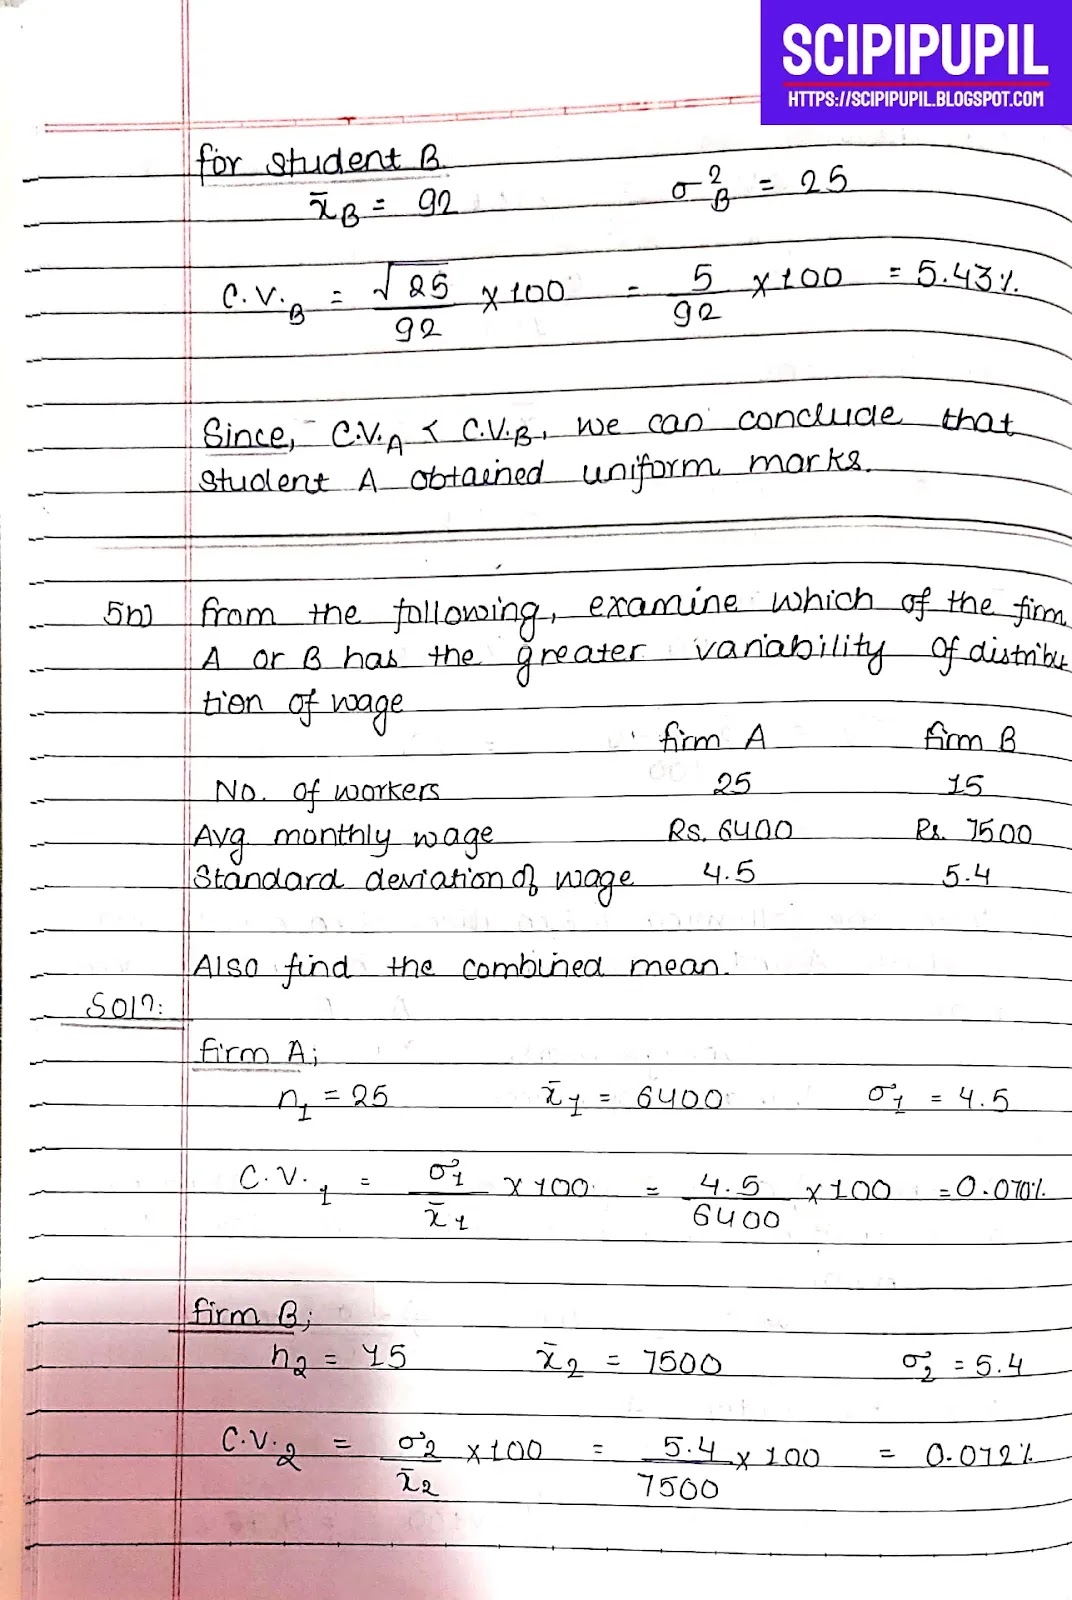 SCIPIPUPIL
HTTPS://SCIPIPUPIL.BLOGSPOT.COM
for student B
x̄B = 92 σ²B = 25
C.V.B = √25/92 × 100 = 5/92 × 100 = 5.43%
Since, C.V.A < C.V.B, we can conclude that
student A obtained uniform marks.
5b) from the following, examine which of the firm
A or B has the greater variability of distribu
tion of wage
firm A firm B
No. of workers 25 15
Avg monthly wage Rs. 6400 Rs. 7500
Standard deviation of wage 4.5 5.4
Also find the combined mean.
Solⁿ:
firm A;
n₁ = 25 x̄₁ = 6400 σ₁ = 4.5
C.V.₁ = σ₁/x̄₁ × 100 = 4.5/6400 × 100 = 0.070%
firm B;
n₂ = 15 x̄₂ = 7500 σ₂ = 5.4
C.V.₂ = σ₂/x̄₂ × 100 = 5.4/7500 × 100 = 0.072%